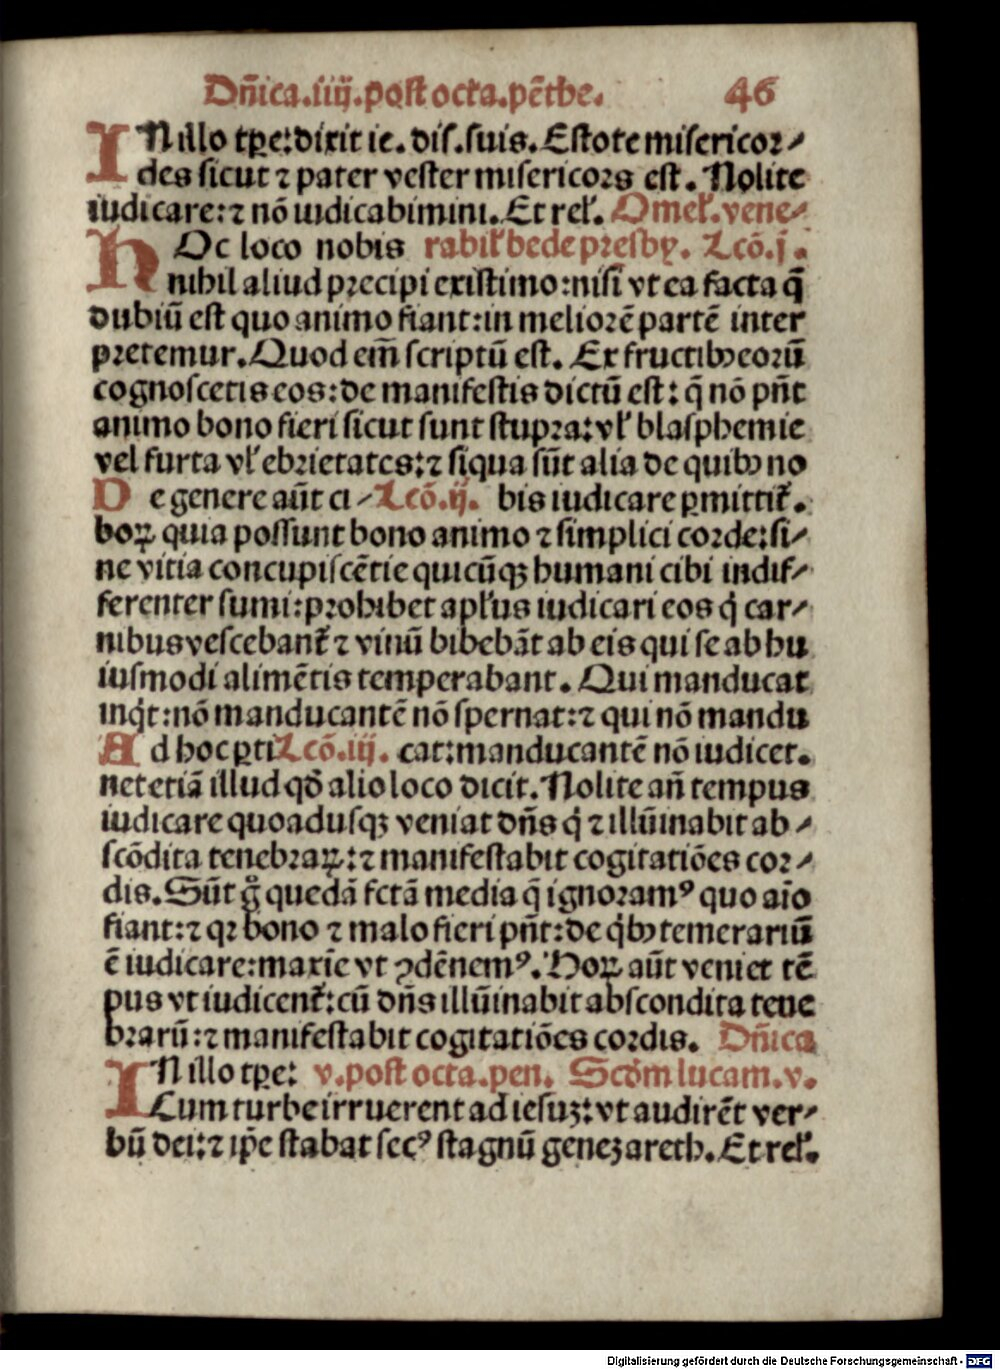 Dñica.iiij.post octa.pẽthe. 46
IN illo tꝑe: dixit ie. dis. suis. Estote misericor⸗
des sicut ⁊ pater vester misericors est. Nolite
iudicare: ⁊ nõ iudicabimini. Et rel̃. Omel̃. vene⸗
HOc loco nobis rabil̃ bede presby. Lcõ.j.
nihil aliud precipi existimo: nisi vt ea facta q̃
dubiũ est quo animo fiant: in meliorẽ partẽ inter
pretemur. Quod em̃ scriptũ est. Ex fructibꝰ eorũ
cognoscetis eos: de manifestis dictũ est: q̃ nõ pñt
animo bono fieri sicut sunt stupra: vl̃ blasphemie
vel furta vl̃ ebrietates: ⁊ siqua sũt alia de quibꝰ no
De genere aũt ci⸗ Lcõ.ij. bis iudicare ꝑmittit̃.
boꝝ quia possunt bono animo ⁊ simplici corde: si⸗
ne vitia concupiscẽtie quicũqꝫ humani cibi indif⸗
ferenter sumi: prohibet apl̃us iudicari eos q̇ car⸗
nibus vescebant̃ ⁊ vinũ bibebãt ab eis qui se ab hu
iusmodi alimẽtis temperabant. Qui manducat
inq̇t: nõ manducantẽ nõ spernat: ⁊ qui nõ mandu
Ad hoc ꝑti Lcõ.iij. cat: manducantẽ nõ iudicet.
net etiã illud qð alio loco dicit. Nolite añ tempus
iudicare quoadusqꝫ veniat dñs q̇ ⁊ illũinabit ab⸗
scõdita tenebraꝝ: ⁊ manifestabit cogitatiões cor⸗
dis. Sũt g̃ quedã fctã media q̃ ignoramꝰ quo aĩo
fiant: ⁊ qꝛ bono ⁊ malo fieri pñt: de q̇bꝰ temerariũ
ẽ iudicare: maxĩe vt ꝯdẽnemꝰ. Hoꝝ aũt veniet tẽ
pus vt iudicent̃: cũ dñs illũinabit abscondita tene
brarũ: ⁊ manifestabit cogitatiões cordis. Dñica
IN illo tꝑe: v. post octa. pen. Scðm lucam. v.
Cum turbe irruerent ad iesuꝫ: vt audirẽt ver⸗
bũ dei: ⁊ ip̃e stabat secꝰ stagnũ genezareth. Et rel̃.
Digitalisierung gefördert durch die Deutsche Forschungsgemeinschaft - DFG